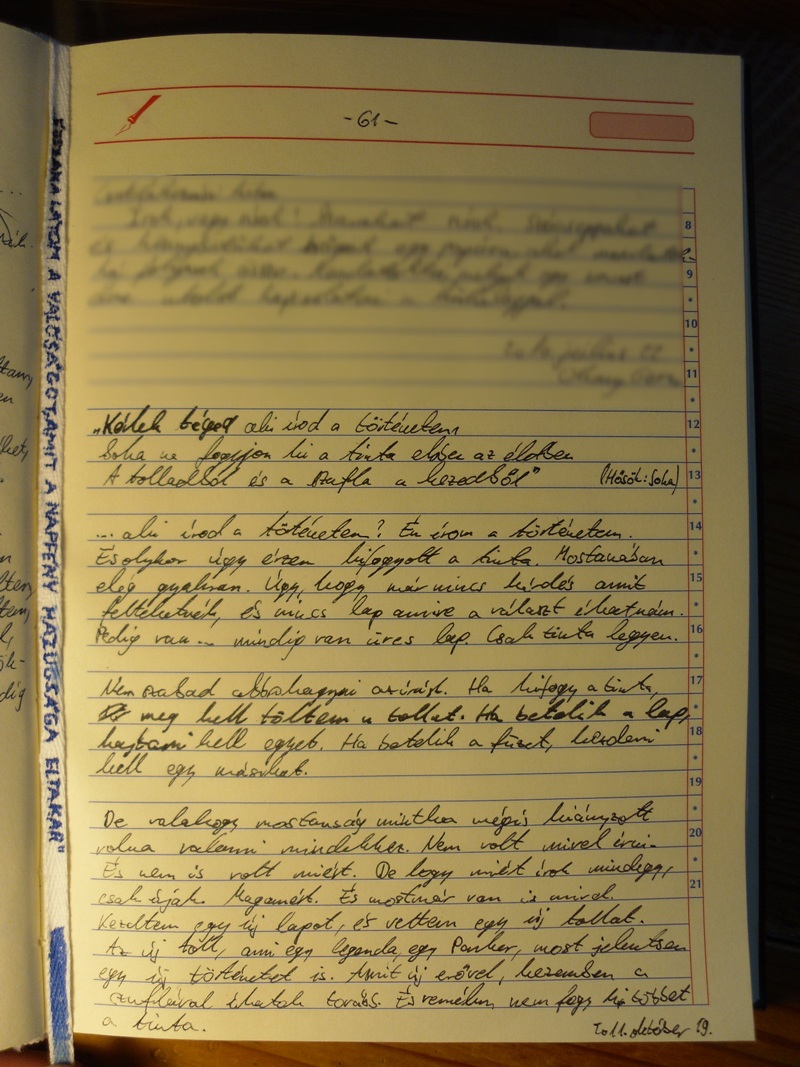 -61-
8
9
10
11
12
13
14
15
16
17
18
19
20
21
"Kérlek téged aki írod a történetem
Soha ne fogyjon ki a tinta ebben az életben
A tolladból és a szufla a kezedből" (Hősök: Soha)
... aki írod a történetem? Én írom a történetem.
És olykor úgy érzem kifogyott a tinta. Mostanában
elég gyakran. Úgy, hogy már nincs kérdés amit
feltehetnék, és nincs lap amire a választ írhatnám.
Pedig van... mindig van üres lap. Csak tinta legyen.
Nem szabad abbahagyni az írást. Ha kifogy a tinta,
meg kell töltem a tollat. Ha betelik a lap,
hajtani kell egyet. Ha betelik a füzet, kezdeni
kell egy másikat.
De valahogy mostanság mintha mégis hiányzott
volna valami mindekhez. Nem volt mivel írni.
És nem is volt miért. De hogy miért írok mindegy,
csak írjak. Magamért. És mostmár van is mivel.
Kezdtem egy új lapot, és vettem egy új tollat.
Az új toll, ami egy legenda, egy Parker, most jelentsen
egy új történetet is. Amit új erővel, kezemben a
szuflával írhatok tovább. És remélem, nem fogy ki többet
a tinta.
2011. október 19.
LÁTOM A VALÓSÁGOT, AMIT A NAPFÉNY HAZUGSÁGA ELTAKAR"